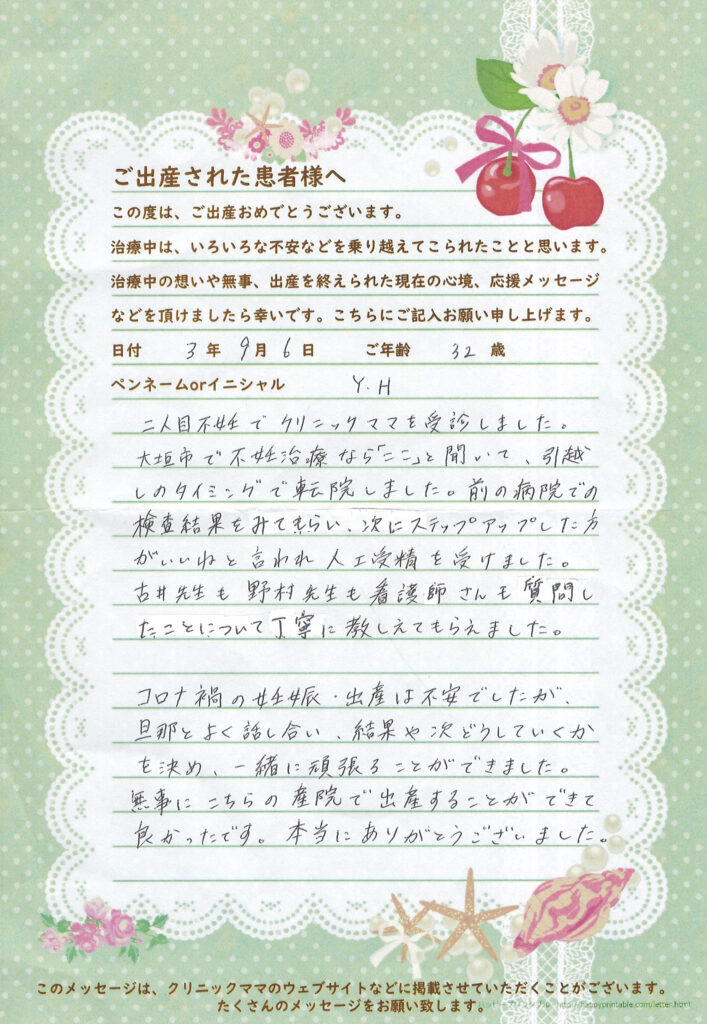 ご出産された患者様へ
この度は、ご出産おめでとうございます。
治療中は、いろいろな不安などを乗り越えてこられたことと思います。
治療中の想いや無事、出産を終えられた現在の心境、応援メッセージ
などを頂けましたら幸いです。こちらにご記入お願い申し上げます。
日付 3年 9月 6日 ご年齢 32 歳
ペンネームorイニシャル Y.H
二人目不妊でクリニックママを受診しました。
大垣市で不妊治療なら「ここ」と聞いて、引越
しのタイミングで転院しました。前の病院での
検査結果をみてもらい、次にステップアップした方
がいいねと言われ人工受精を受けました。
古井先生も野村先生も看護師さんも質問し
たことについて丁寧に教しえてもらえました。
コロナ禍の妊娠・出産は不安でしたが、
旦那とよく話し合い、結果や次どうしていくか
を決め、一緒に頑張ることができました。
無事にこちらの産院で出産することができて
良かったです。本当にありがとうございました。
このメッセージは、クリニックママのウェブサイトなどに掲載させていただくことがございます。
たくさんのメッセージをお願い致します。
ハッピープリンタブル http://happyprintable.com/letter.html